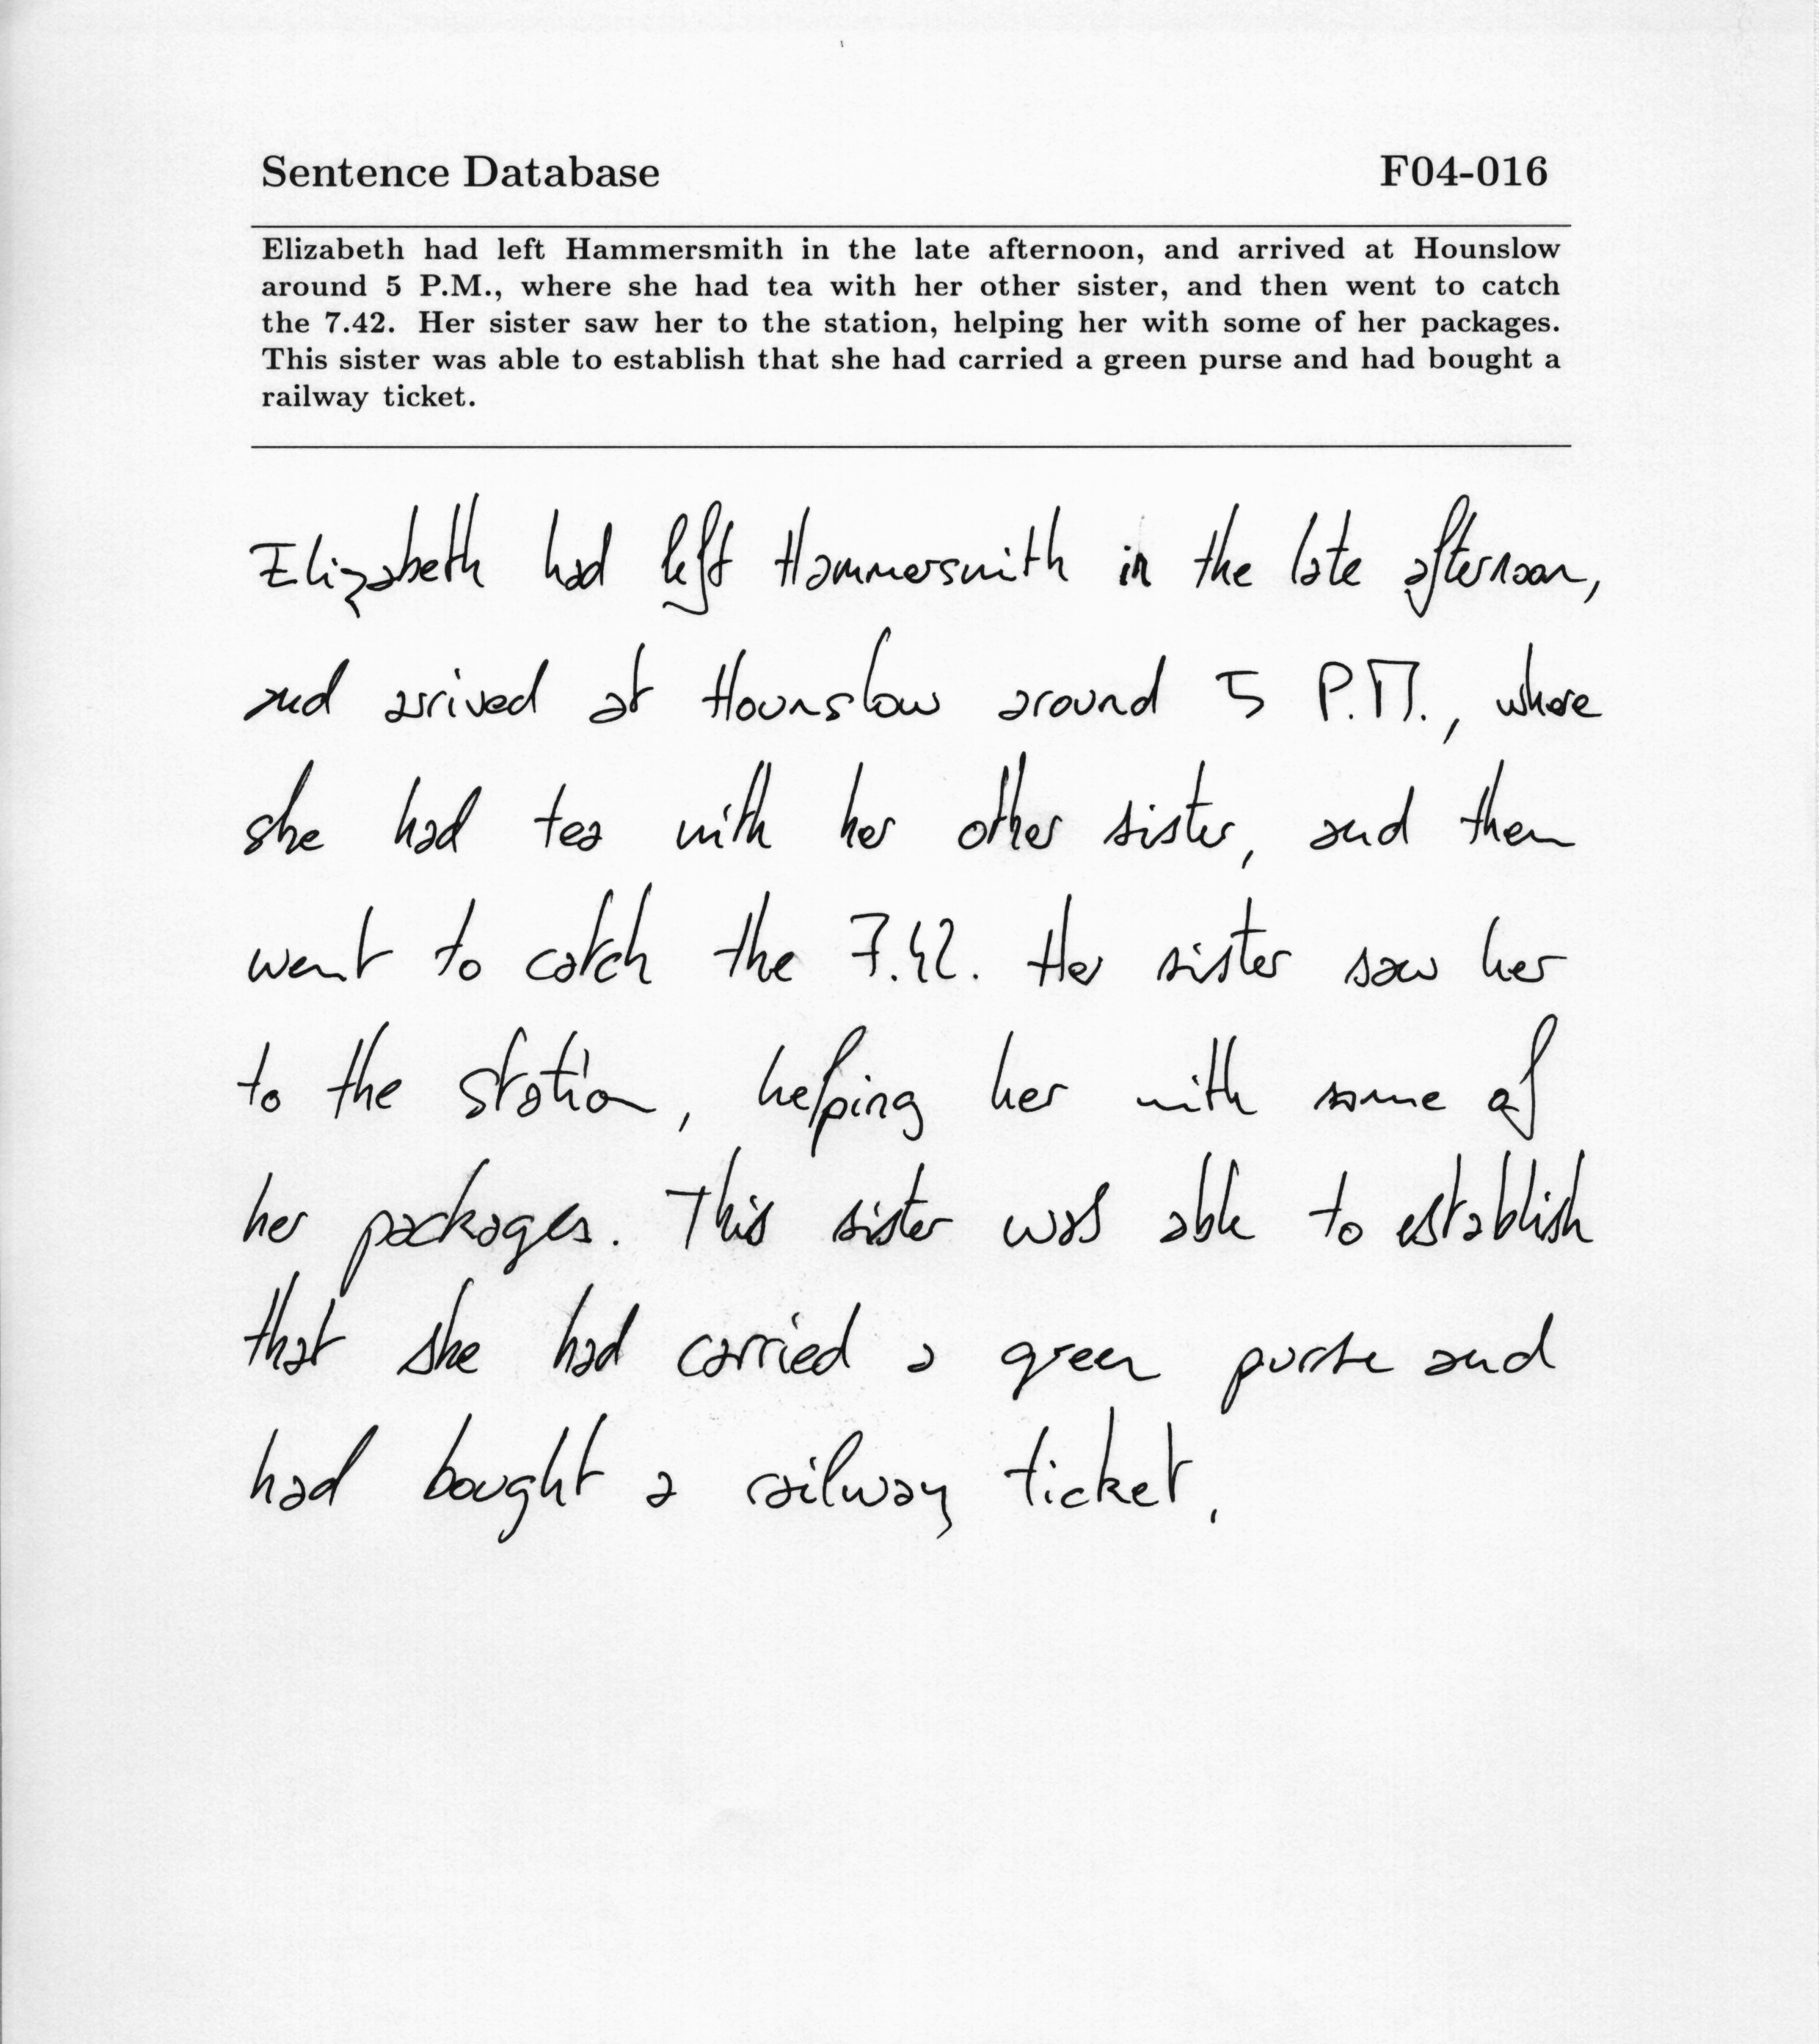 Sentence Database F04-016
Elizabeth had left Hammersmith in the late afternoon, and arrived at Hounslow
around 5 P.M., where she had tea with her other sister, and then went to catch
the 7.42. Her sister saw her to the station, helping her with some of her packages.
This sister was able to establish that she had carried a green purse and had bought a
railway ticket.
Elizabeth had left Hammersmith in the late afternoon,
and arrived at Hounslow around 5 P.M., where
she had tea with her other sister, and then
went to catch the 7.42. Her sister saw her
to the station, helping her with some of
her packages. This sister was able to establish
that she had carried a green purse and
had bought a railway ticket.